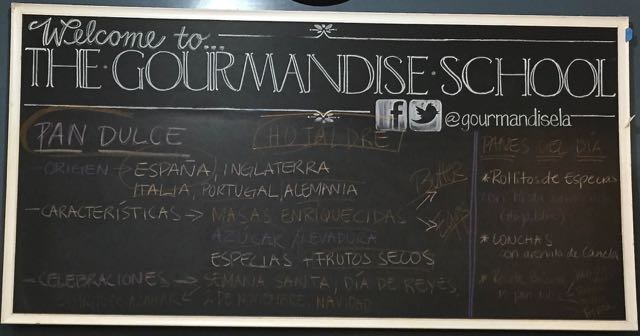 Welcome to...
THE·GOURMANDISE·SCHOOL
f @gourmandisela
PAN DULCE
HOJALDRE
-ORIGEN → ESPAÑA, INGLATERRA
ITALIA, PORTUGAL, ALEMANIA
-CARACTERÍSTICAS → MASAS ENRIQUECIDAS
AZÚCAR / LEVADURA
ESPECIAS + FRUTOS SECOS
-CELEBRACIONES → SEMANA SANTA, DÍA DE REYES,
2 DE NOVIEMBRE, NAVIDAD
PANES DEL DÍA
*Rollitos de Especias
(Hojaldre)
*CONCHAS
con arenilla de Canela